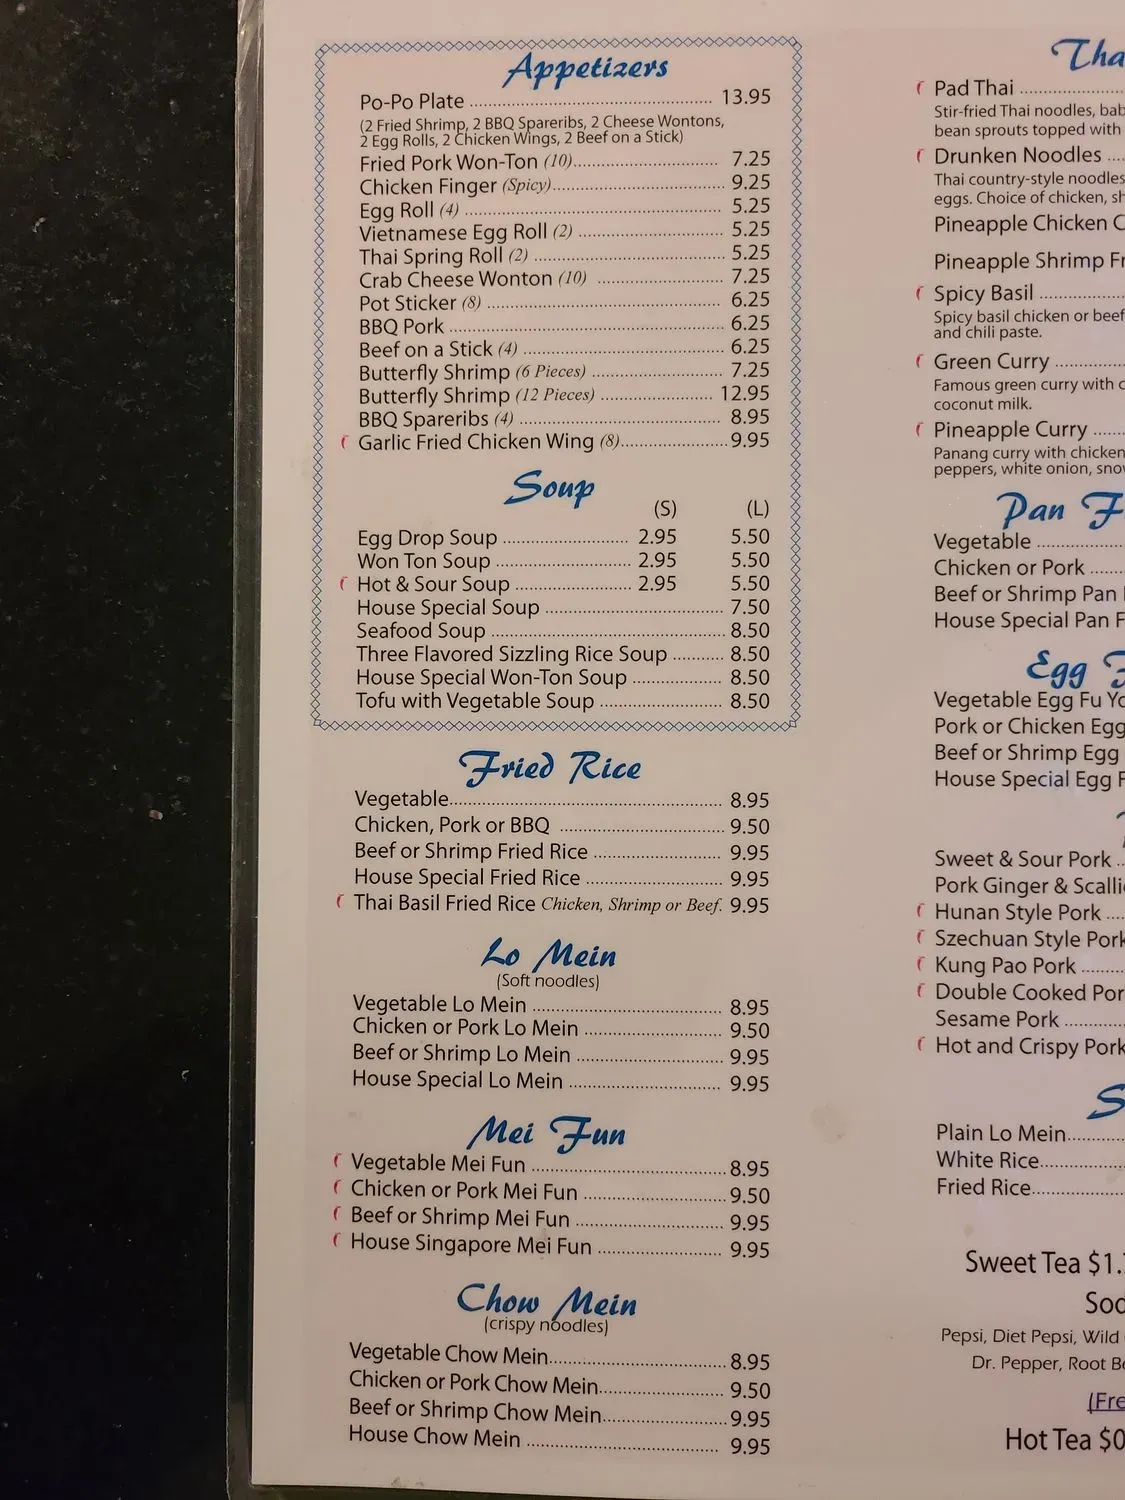 Appetizers
Po-Po Plate 13.95
(2 Fried Shrimp, 2 BBQ Spareribs, 2 Cheese Wontons,
2 Egg Rolls, 2 Chicken Wings, 2 Beef on a Stick)
Fried Pork Won-Ton (10) 7.25
Chicken Finger (Spicy) 9.25
Egg Roll (4) 5.25
Vietnamese Egg Roll (2) 5.25
Thai Spring Roll (2) 5.25
Crab Cheese Wonton (10) 7.25
Pot Sticker (8) 6.25
BBQ Pork 6.25
Beef on a Stick (4) 6.25
Butterfly Shrimp (6 Pieces) 7.25
Butterfly Shrimp (12 Pieces) 12.95
BBQ Spareribs (4) 8.95
Garlic Fried Chicken Wing (8) 9.95
Soup
(S) (L)
Egg Drop Soup 2.95 5.50
Won Ton Soup 2.95 5.50
Hot & Sour Soup 2.95 5.50
House Special Soup 7.50
Seafood Soup 8.50
Three Flavored Sizzling Rice Soup 8.50
House Special Won-Ton Soup 8.50
Tofu with Vegetable Soup 8.50
Fried Rice
Vegetable 8.95
Chicken, Pork or BBQ 9.50
Beef or Shrimp Fried Rice 9.95
House Special Fried Rice 9.95
Thai Basil Fried Rice Chicken, Shrimp or Beef. 9.95
Lo Mein
(Soft noodles)
Vegetable Lo Mein 8.95
Chicken or Pork Lo Mein 9.50
Beef or Shrimp Lo Mein 9.95
House Special Lo Mein 9.95
Mei Fun
Vegetable Mei Fun 8.95
Chicken or Pork Mei Fun 9.50
Beef or Shrimp Mei Fun 9.95
House Singapore Mei Fun 9.95
Chow Mein
(crispy noodles)
Vegetable Chow Mein 8.95
Chicken or Pork Chow Mein 9.50
Beef or Shrimp Chow Mein 9.95
House Chow Mein 9.95
Tha
Pad Thai
Stir-fried Thai noodles, bab
bean sprouts topped with
Drunken Noodles
Thai country-style noodles
eggs. Choice of chicken, sh
Pineapple Chicken C
Pineapple Shrimp Fr
Spicy Basil
Spicy basil chicken or beef
and chili paste.
Green Curry
Famous green curry with c
coconut milk.
Pineapple Curry
Panang curry with chicken
peppers, white onion, snow
Pan F
Vegetable
Chicken or Pork
Beef or Shrimp Pan
House Special Pan F
Egg F
Vegetable Egg Fu Yo
Pork or Chicken Egg
Beef or Shrimp Egg
House Special Egg F
Sweet & Sour Pork
Pork Ginger & Scalli
Hunan Style Pork
Szechuan Style Pork
Kung Pao Pork
Double Cooked Por
Sesame Pork
Hot and Crispy Pork
S
Plain Lo Mein
White Rice
Fried Rice
Sweet Tea $1.
Sod
Pepsi, Diet Pepsi, Wild
Dr. Pepper, Root Be
(Fre
Hot Tea $0